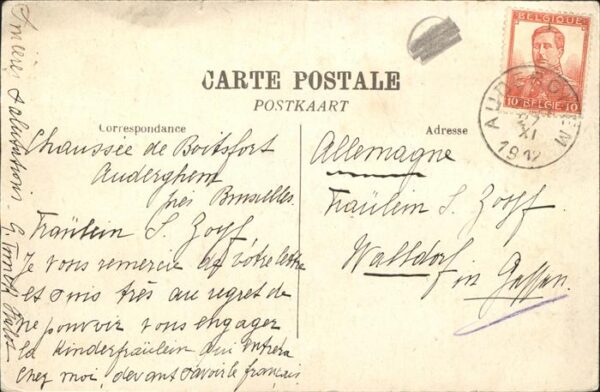 BELGIQUE
10 BELGIË 10
XI
1912
CARTE POSTALE
POSTKAART
Correspondance
Adresse
Chaussée de Boitsfort
Auderghem
près Bruxelles.
Fräulein S. Zopf
Je vous remercie de vôtre lettre
et suis très au regret de
ne pouvoir vous engager
la Kinderfräulein qui entrera
chez moi, devant savoir le français
salutations.
Allemagne
Fräulein S. Zopf
Walldorf
in Hessen.